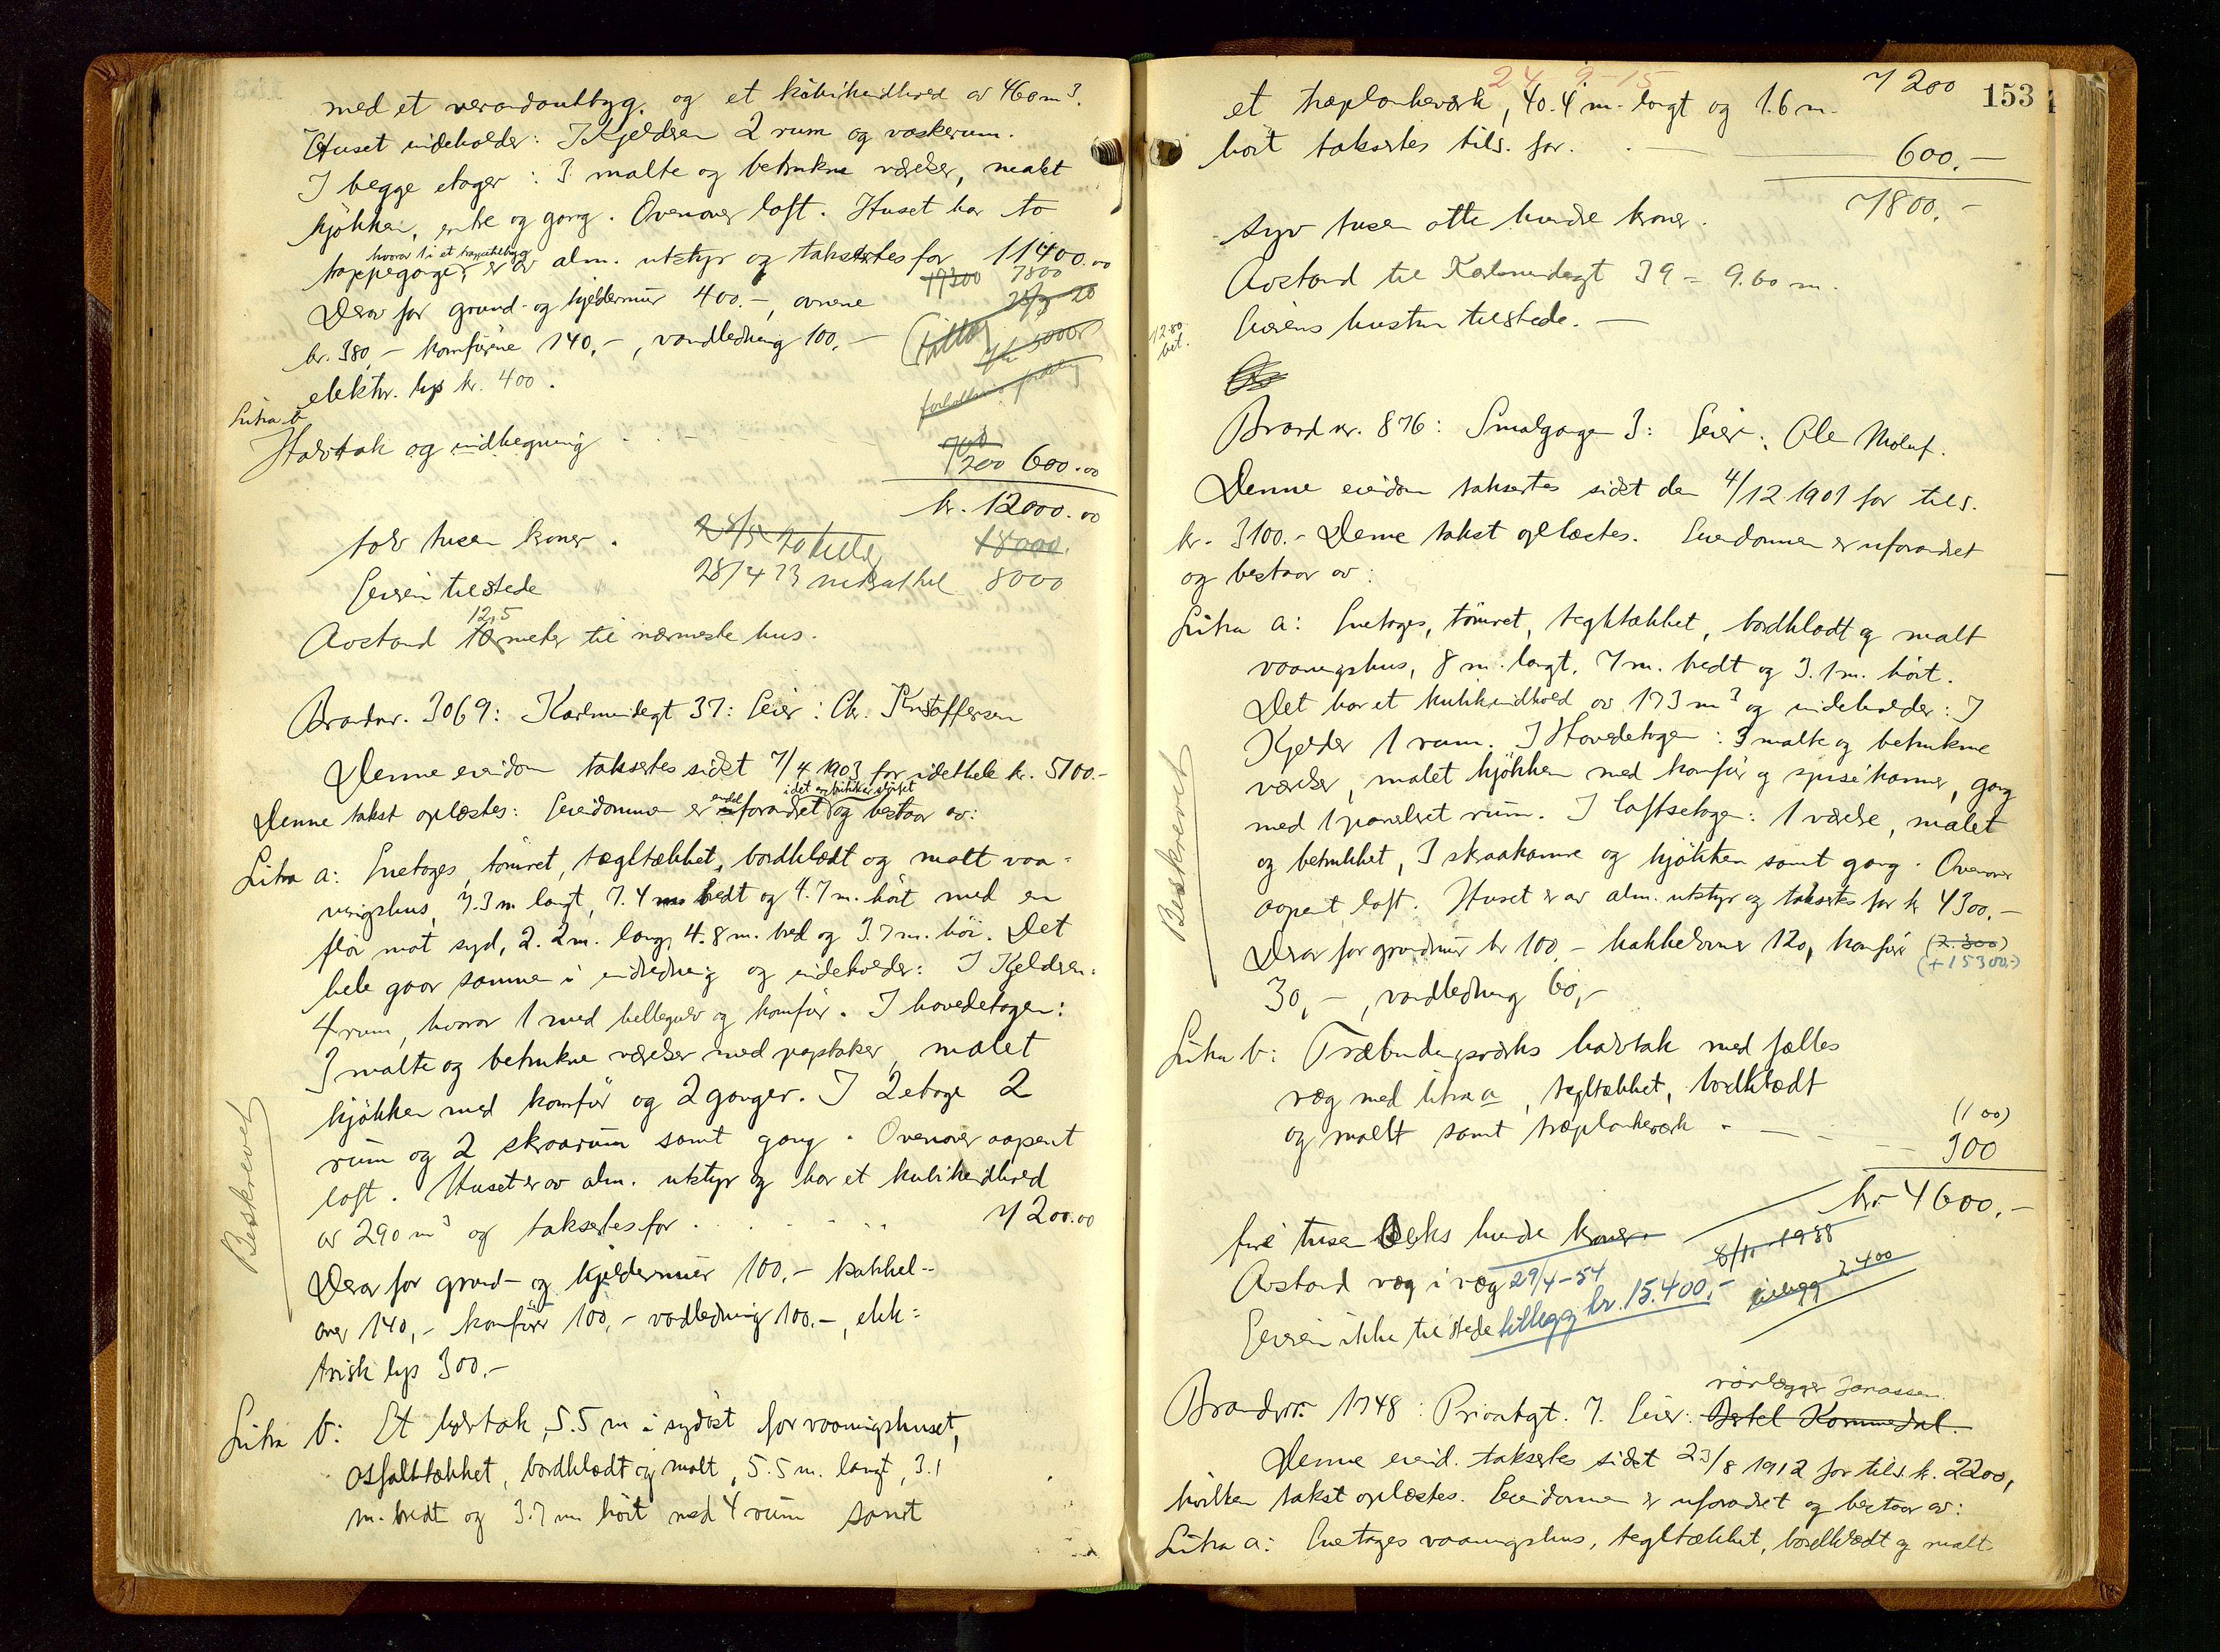 med et verandautbyg. og et kubikindhold av 460 m³.
Huset indeholder: I Kjelderen 2 rum og vaskerum.
I begge etager: 3 malte og betrukne værelser, malet
kjøkken, entre og gang. Ovenover loft. Huset har to
hvorav 1 i et trappetilbyg
trappeganger, er av alm. utstyr og taksertes for 11400.00
Derav for grund- og kjeldermur 400.-, ovnene
17300 7800
kr. 380,- komfürene 140,-, vandledning 100,-
28/9 20
elektr. lys kr. 400.
Litra b
Halvtak og indhegning . . -
700
1200 600.00
kr. 12000.00
tolv tusen kroner.
18000.
28/4 23 nedsat til 8000
Eieren tilstede
12,5
Avstand 10 meter til nærmeste hus.
Brandnr. 3069: Karlsmindegt 37: Eier: Chr. Kristoffersen
Denne eiendom taksertes sidst 7/4 1903 for idethele kr. 5100.-
endel
i det en butikk er sløifet
Denne takst oplæstes: Eiendommen er uforandret og bestaar av:
Litra a: Enetages, tömret, tegltækket, bordklædt og malt vaa-
ningshus, 7.3 m langt, 7.4 m bredt og 4.7 m. høit med en
fløi mot syd, 2.2 m. lang, 4.8 m. bred og 3.7 m. høi. Det
hele gaar sammen i indredning og indeholder: I Kjelderen:
4 rum, hvorav 1 med hellegulv og komfür. I hovedetagen:
3 malte og betrukne værelser med paptaker, malet
kjøkken med komfür og 2 ganger. I 2 etage 2
rum og 2 skraarum samt gang. Ovenover aapent
loft. Huset er av alm. utstyr og har et kubikindhold
av 290 m³ og taksertes for . . . . . 7200.00
Beskrevet
Derav for grund- og kjeldermur 100.- kakkel-
ovner 140,- komfürer 100,- vandledning 100.-, elek-
trisk lys 300.-
Litra b: Et halvtak, 5.5 m i sydøst for vaaningshuset,
asfalttækket, bordklædt og malt, 5.5 m. langt, 3.1
m. bredt og 3.7 m høit med 4 rum samt
24-9-15
153
7200
et træplankeværk, 40.4 m. langt og 1.6 m.
høit taksertes tils. for . . 600.-
7800.-
syv tusen otte hundre kroner.
Avstand til Karlsmindegt 39 = 9.60 m.
12.80
bet.
Eierens hustru tilstede.-
Brand nr. 876: Smalgangen 3: Eier: Ole Moluf.
Denne eiendom taksertes sidst den 4/12 1901 for tils.
kr. 3100.- Denne takst oplæstes. Eiendommen er uforandret
og bestaar av:
Litra a: Enetages, tömret, tegltækket, bordklædt og malt
vaaningshus, 8 m. langt, 7 m. bredt og 3.1 m. høit.
Det har et kubikindhold av 173 m³ og indeholder: I
Kjelder 1 rum. I Hovedetagen: 3 malte og betrukne
værelser, malet kjøkken med komfür og spisekammer, gang
med 1 panelet rum. I loftsetagen: 1 værelse, malet
og betrukket, 3 skraakamre og kjøkken samt gang. Ovenover
aapent loft. Huset er av alm. utstyr og taksertes for kr 4300.-
Beskrevet
Derav for grundmur kr 100,- kakkelovner 120, komfür (2.300)
(+15300,-)
30,-, vandledning 60,-
Litra b: Træbindingsverks halvtak med fælles
væg med litra a, tegltækket, bordklædt
og malt samt træplankeverk . - - - (100)
300
kr. 4600.-
fire tusen seks hundre kroner.
8/11 1938
Avstand væg i væg 29/4-54
tillegg 2400
Eieren ikke tilstede tillegg kr. 15.400,-
rørlægger Jonassen.
Brandnr. 1748: Privatgt. 7. Eier: Bertel Kommedal.
Denne eiend. taksertes sidst 23/8 1912 for tils. kr. 2200,
hvilken takst oplæstes. Eiendommen er uforandret og bestaar av:
Litra a: Enetages vaaningshus, tegltækket, bordklædt og malt